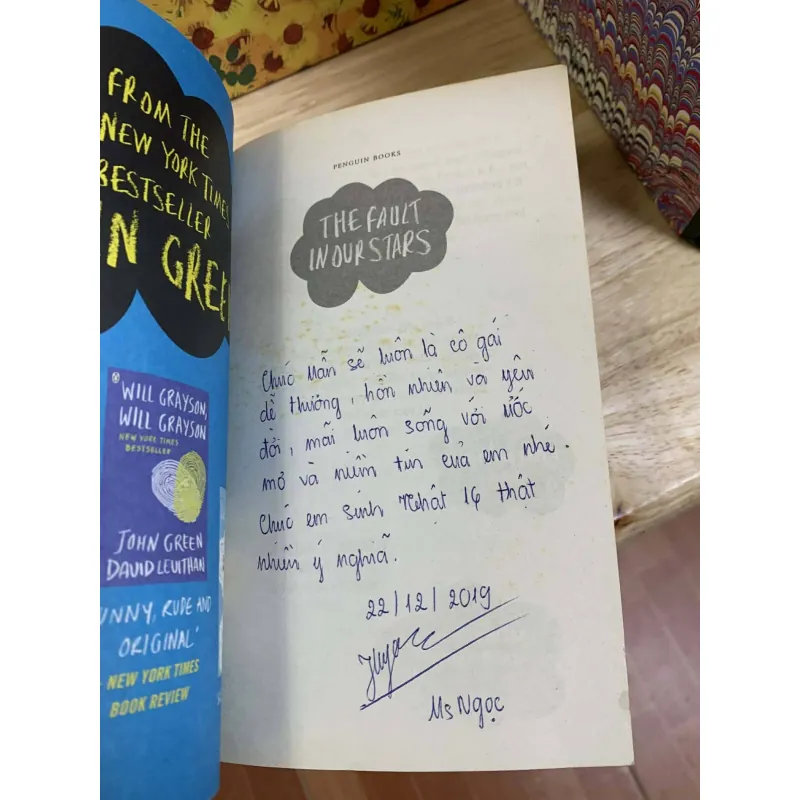 FROM THE
NEW YORK TIMES
BESTSELLER
N GREE
WILL GRAYSON,
WILL GRAYSON
NEW YORK TIMES
BESTSELLER
JOHN GREEN
DAVID LEVITHAN
UNNY, RUDE AND
ORIGINAL'
- NEW YORK TIMES
BOOK REVIEW
PENGUIN BOOKS
THE FAULT
IN OUR STARS
Chúc Mẫn sẽ luôn là cô gái
dễ thương, hồn nhiên và yêu
đời, mãi luôn sống với ước
mơ và niềm tin của em nhé.
Chúc em Sinh Nhật 14 thật
nhiều ý nghĩa.
22/12/2019
Ms Ngọc